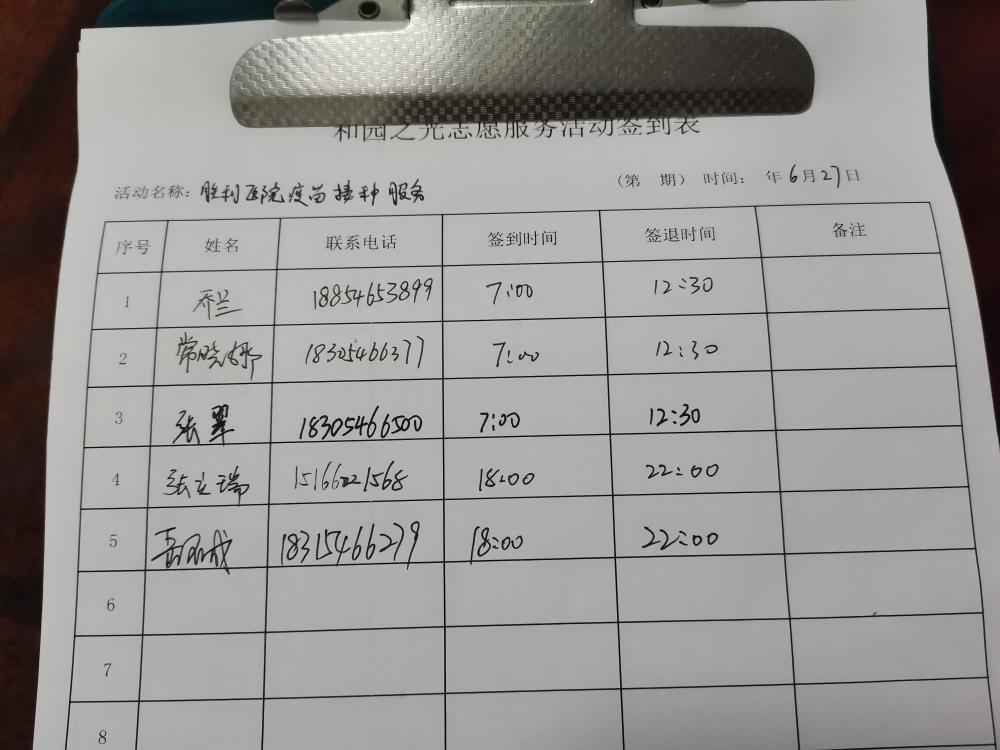 和园之光志愿服务活动签到表
活动名称：胜利医院疫苗接种服务 （第 期） 时间： 年6月27日
序号 姓名 联系电话 签到时间 签退时间 备注
1 乔兰 18854653899 7:00 12:30
2 常晓婷 18305466377 7:00 12:30
3 张翠 18305466500 7:00 12:30
4 张立瑞 15166221568 18:00 22:00
5 18315466279 18:00 22:00
6
7
8